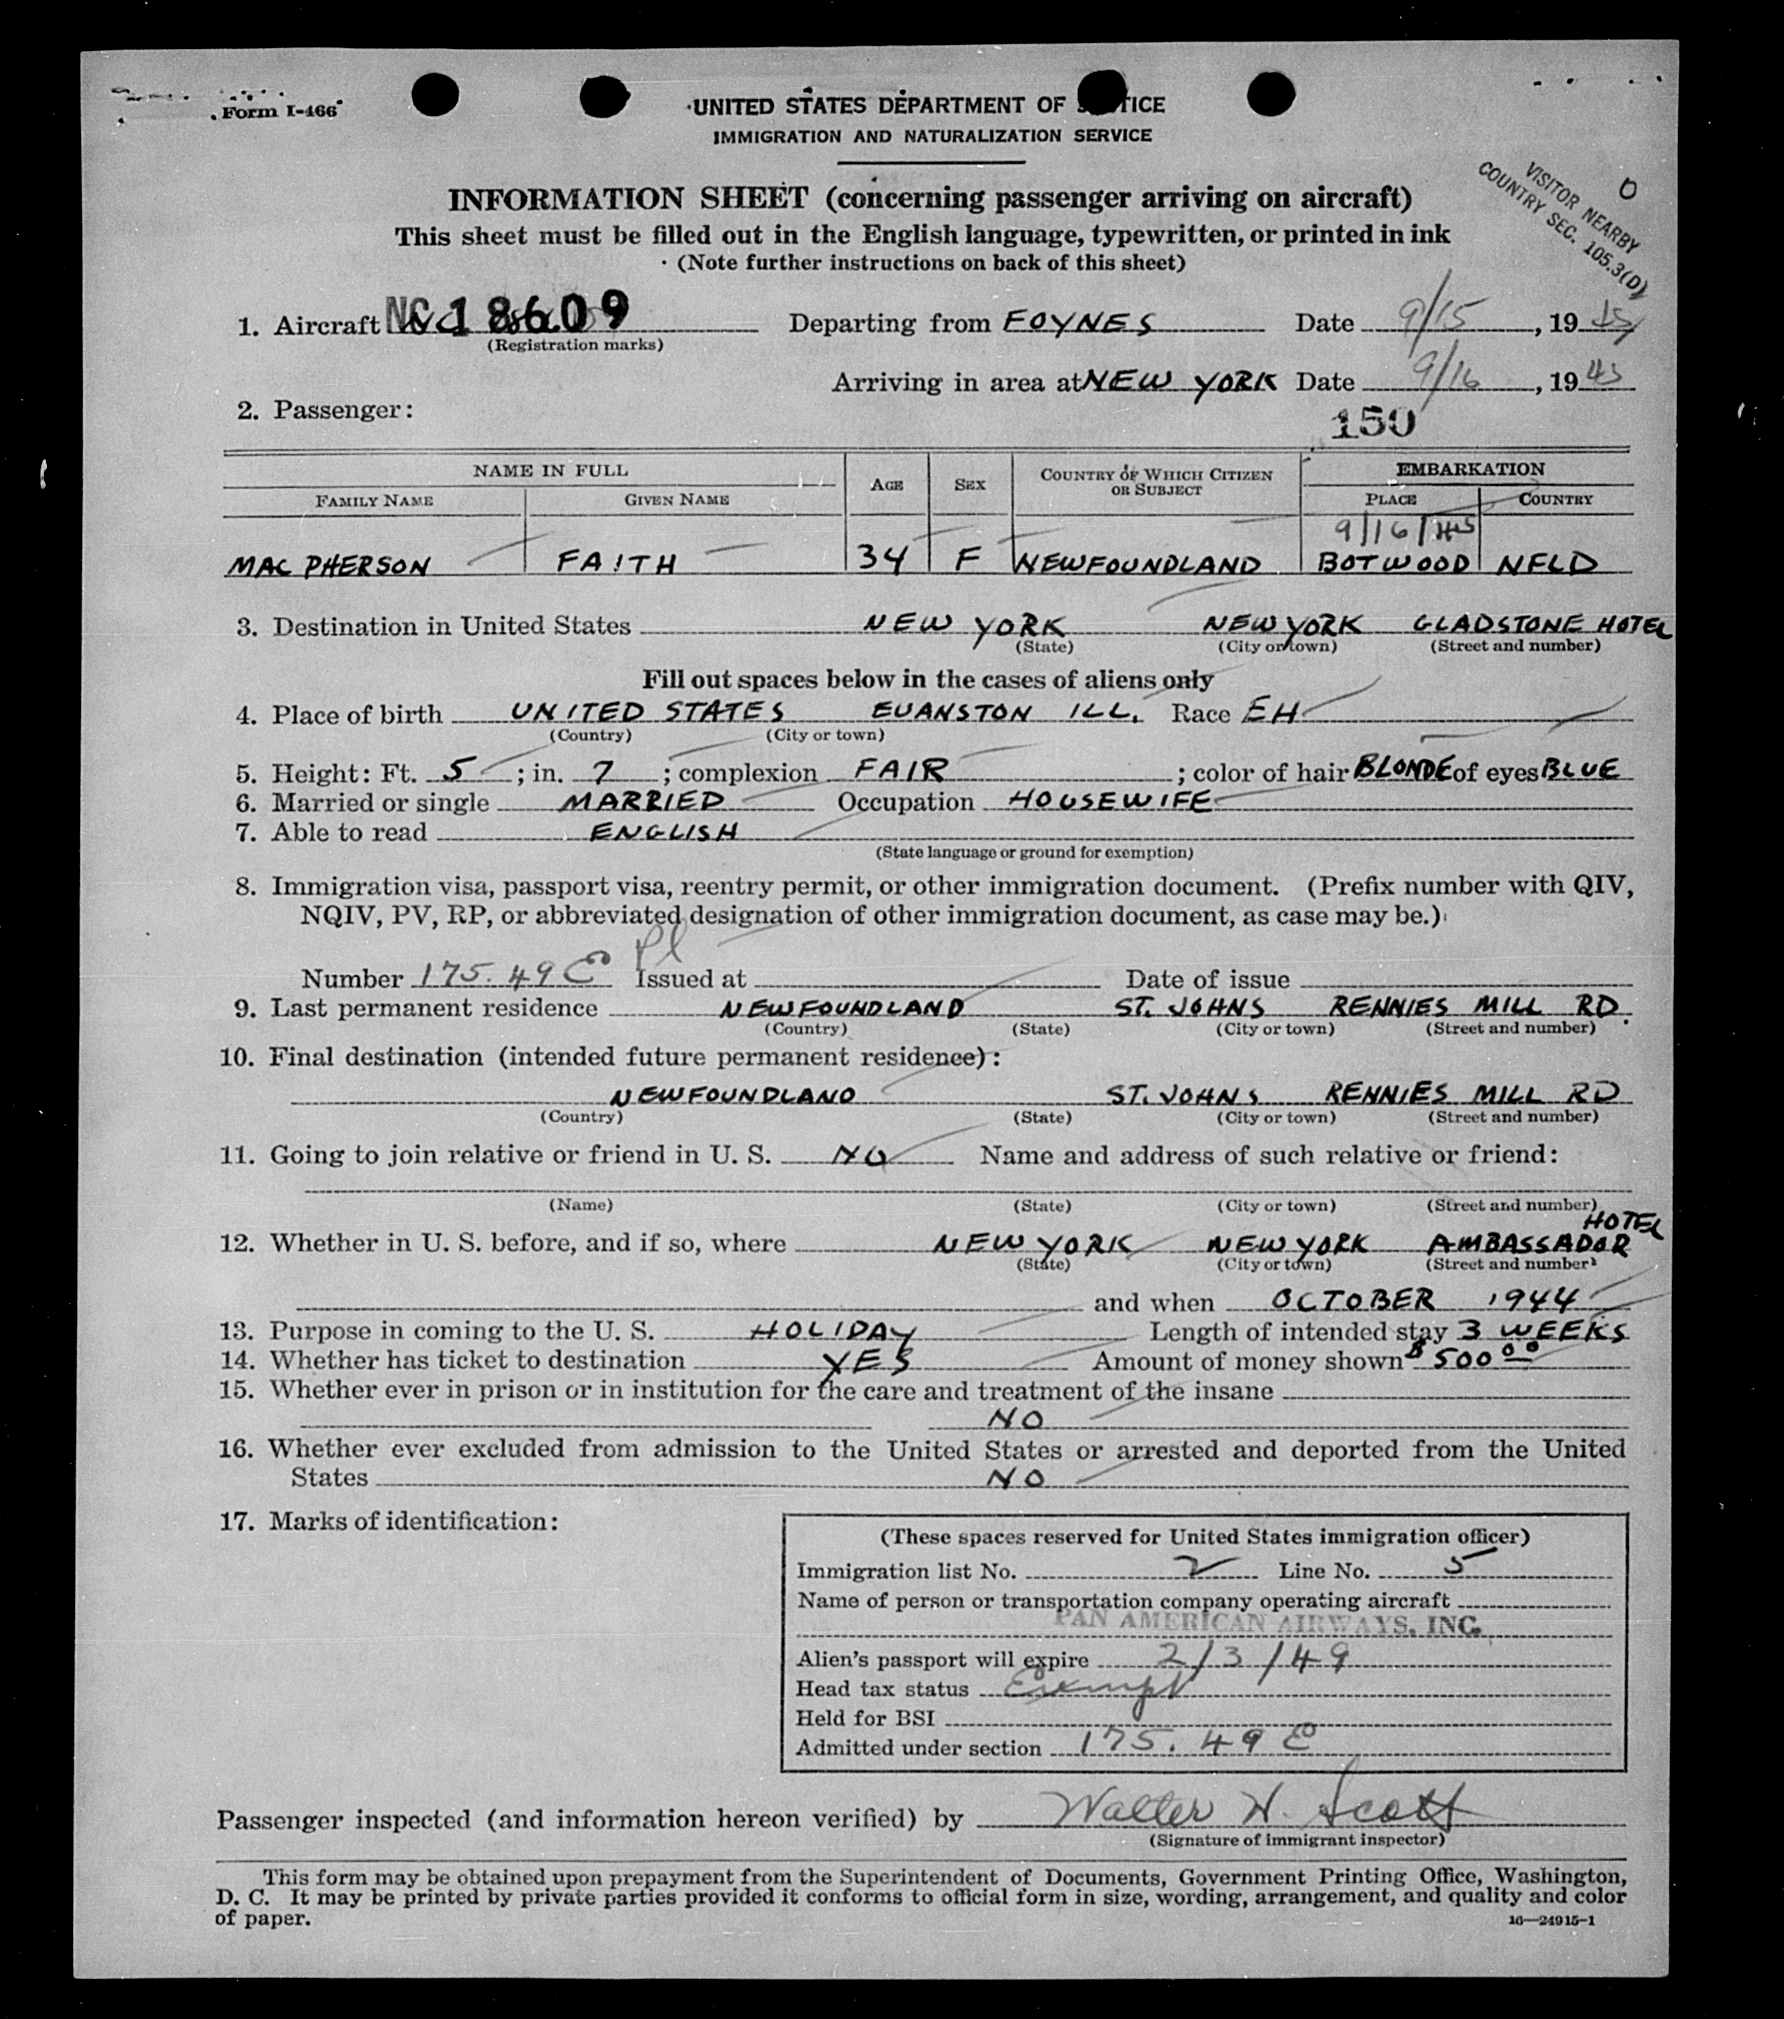 Form I-466
UNITED STATES DEPARTMENT OF TICE
IMMIGRATION AND NATURALIZATION SERVICE
INFORMATION SHEET (concerning passenger arriving on aircraft)
This sheet must be filled out in the English language, typewritten, or printed in ink
(Note further instructions on back of this sheet)
VISITOR NEARBY
COUNTRY SEC. 105.3(D)
1. Aircraft NC 18609 Departing from FOYNES Date 9/15, 1945
(Registration marks)
Arriving in area at NEW YORK Date 9/16, 1945
2. Passenger:
150
NAME IN FULL
FAMILY NAME GIVEN NAME AGE SEX COUNTRY OF WHICH CITIZEN OR SUBJECT EMBARKATION
PLACE COUNTRY
9/16/45
MAC PHERSON FAITH 34 F NEWFOUNDLAND BOTWOOD NFLD
3. Destination in United States NEW YORK NEW YORK GLADSTONE HOTEL
(State) (City or town) (Street and number)
Fill out spaces below in the cases of aliens only
4. Place of birth UNITED STATES EVANSTON ILL. Race EH
(Country) (City or town)
5. Height: Ft. 5; in. 7; complexion FAIR; color of hair BLONDE of eyes BLUE
6. Married or single MARRIED Occupation HOUSEWIFE
7. Able to read ENGLISH
(State language or ground for exemption)
8. Immigration visa, passport visa, reentry permit, or other immigration document. (Prefix number with QIV,
NQIV, PV, RP, or abbreviated designation of other immigration document, as case may be.)
Number 175.49 Issued at Date of issue
9. Last permanent residence NEWFOUNDLAND ST. JOHNS RENNIES MILL RD.
(Country) (State) (City or town) (Street and number)
10. Final destination (intended future permanent residence):
NEWFOUNDLAND ST. JOHNS RENNIES MILL RD
(Country) (State) (City or town) (Street and number)
11. Going to join relative or friend in U. S. NO Name and address of such relative or friend:
(Name) (State) (City or town) (Street and number)
12. Whether in U. S. before, and if so, where NEW YORK NEW YORK AMBASSADOR HOTEL
(State) (City or town) (Street and number)
and when OCTOBER 1944
13. Purpose in coming to the U. S. HOLIDAY Length of intended stay 3 WEEKS
14. Whether has ticket to destination YES Amount of money shown $500 00
15. Whether ever in prison or in institution for the care and treatment of the insane
NO
16. Whether ever excluded from admission to the United States or arrested and deported from the United
States NO
17. Marks of identification:
(These spaces reserved for United States immigration officer)
Immigration list No. 2 Line No. 5
Name of person or transportation company operating aircraft
PAN AMERICAN AIRWAYS, INC.
Alien's passport will expire 2/3/49
Head tax status Exempt
Held for BSI
Admitted under section 175.49
Passenger inspected (and information hereon verified) by Walter H. Scott
(Signature of immigrant inspector)
This form may be obtained upon prepayment from the Superintendent of Documents, Government Printing Office, Washington,
D. C. It may be printed by private parties provided it conforms to official form in size, wording, arrangement, and quality and color
of paper.
16—24915-1